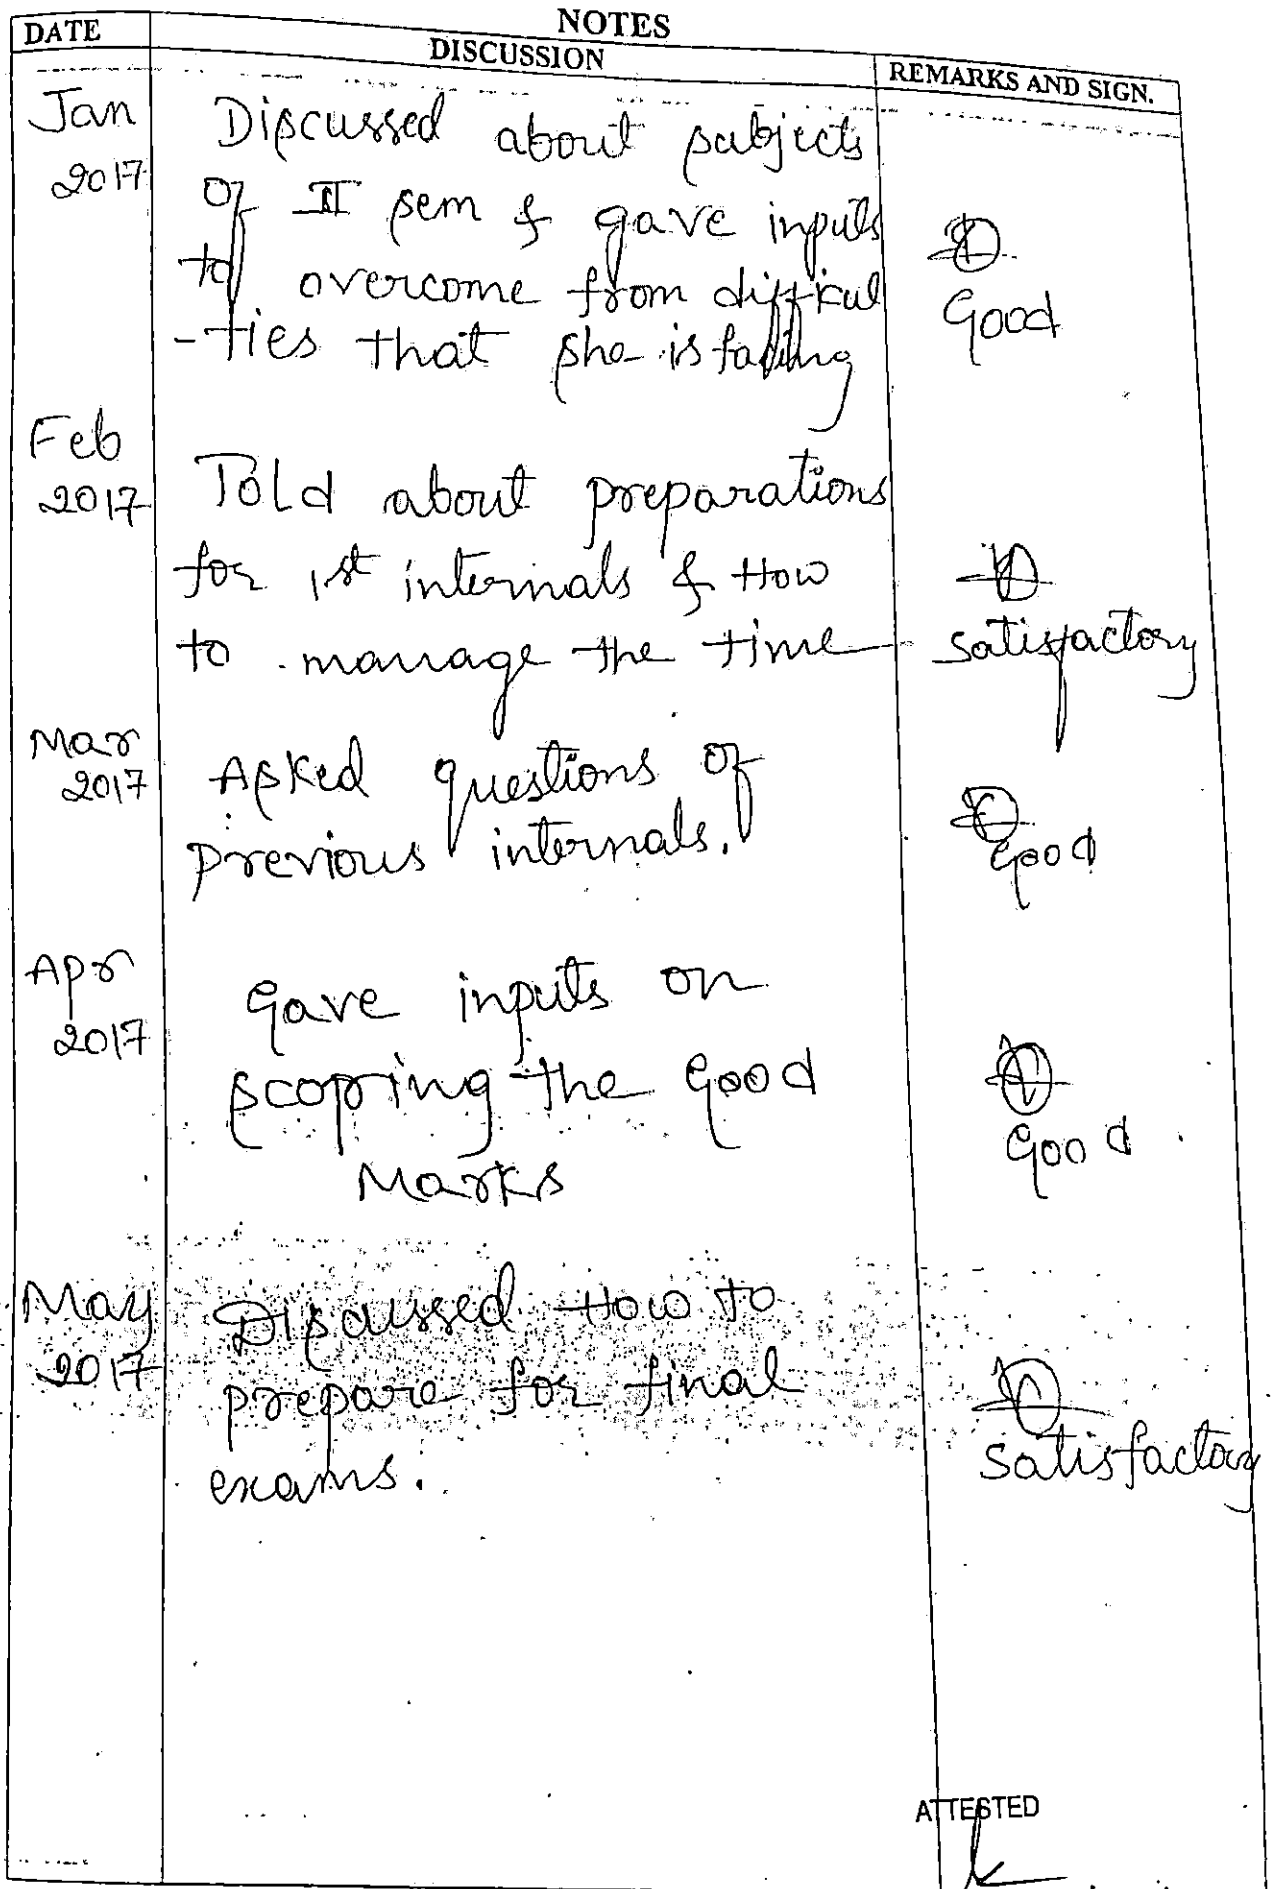 NOTES
DATE DISCUSSION REMARKS AND SIGN.
Jan Discussed about subjects
2017 of II sem & gave inputs
to overcome from difficul
-ties that she is facing
Good
Feb
2017 Told about preparations
for 1st internals & How
to manage the time satisfactory
Mar
2017 Asked questions of
previous internals. Good
Apr
2017 Gave inputs on
scopring the Good
Marks Good
May Discussed How to
2017 prepare for final
exams. Satisfactory
ATTESTED